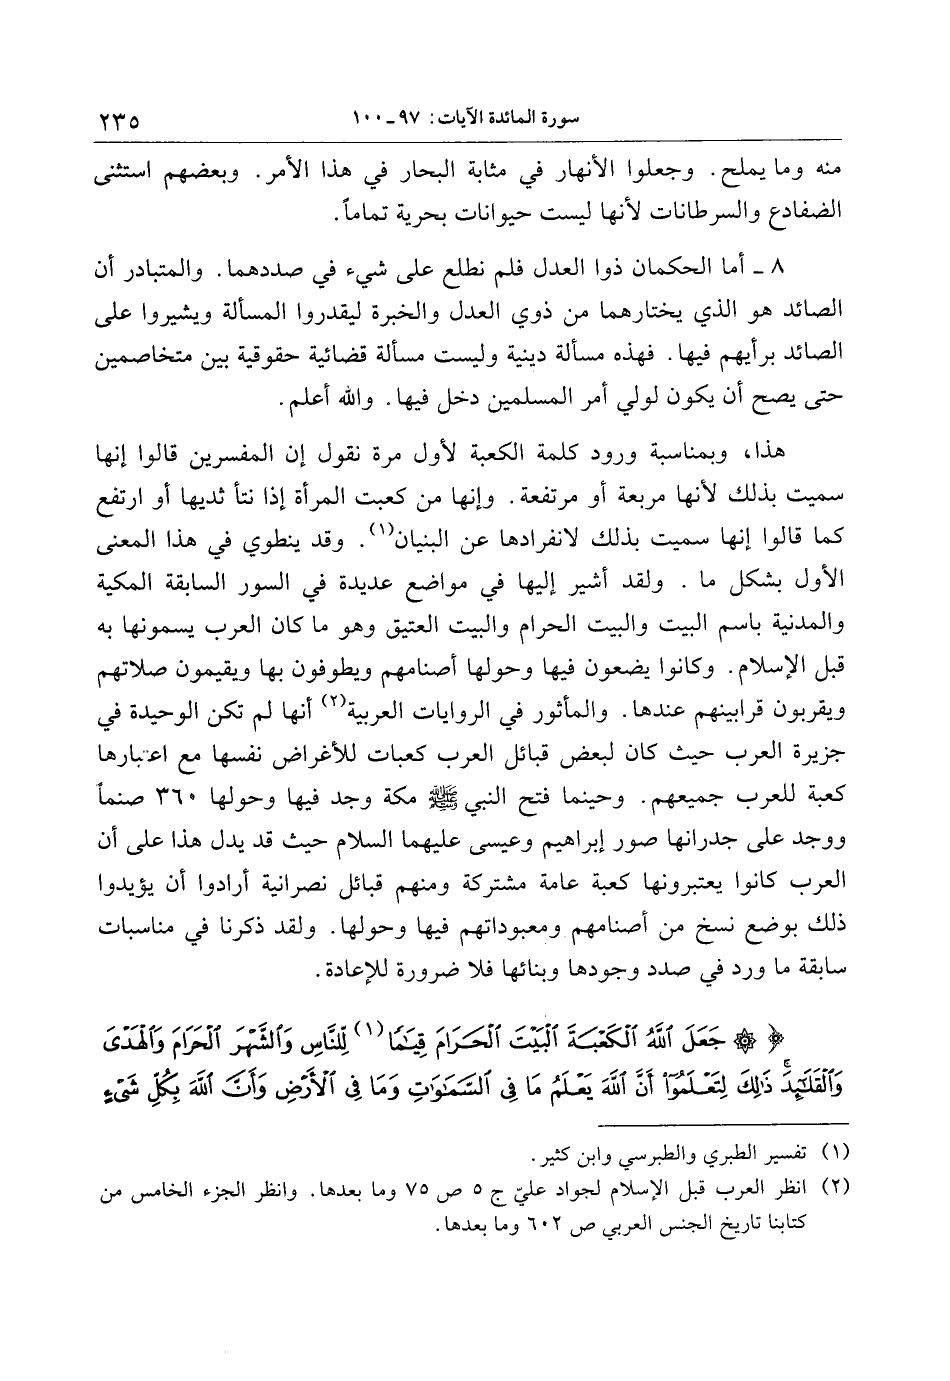 سورة المائدة الآيات: ٩٧ ـ ١٠٠ ٢٣٥
منه وما يملح. وجعلوا الأنهار في مثابة البحار في هذا الأمر. وبعضهم استثنى
الضفادع والسرطانات لأنها ليست حيوانات بحرية تماماً.
٨ ـ أما الحكمان ذوا العدل فلم نطلع على شيء في صددهما. والمتبادر أن
الصائد هو الذي يختارهما من ذوي العدل والخبرة ليقدروا المسألة ويشيروا على
الصائد برأيهم فيها. فهذه مسألة دينية وليست مسألة قضائية حقوقية بين متخاصمين
حتى يصح أن يكون لولي أمر المسلمين دخل فيها. والله أعلم.
هذا، وبمناسبة ورود كلمة الكعبة لأول مرة نقول إن المفسرين قالوا إنها
سميت بذلك لأنها مربعة أو مرتفعة. وإنها من كعبت المرأة إذا نتأ ثديها أو ارتفع
كما قالوا إنها سميت بذلك لانفرادها عن البنيان(١). وقد ينطوي في هذا المعنى
الأول بشكل ما . ولقد أشير إليها في مواضع عديدة في السور السابقة المكية
والمدنية باسم البيت والبيت الحرام والبيت العتيق وهو ما كان العرب يسمونها به
قبل الإسلام. وكانوا يضعون فيها وحولها أصنامهم ويطوفون بها ويقيمون صلاتهم
ويقربون قرابينهم عندها. والمأثور في الروايات العربية(٢) أنها لم تكن الوحيدة في
جزيرة العرب حيث كان لبعض قبائل العرب كعبات للأغراض نفسها مع اعتبارها
كعبة للعرب جميعهم. وحينما فتح النبي ﷺ مكة وجد فيها وحولها ٣٦٠ صنماً
ووجد على جدرانها صور إبراهيم وعيسى عليهما السلام حيث قد يدل هذا على أن
العرب كانوا يعتبرونها كعبة عامة مشتركة ومنهم قبائل نصرانية أرادوا أن يؤيدوا
ذلك بوضع نسخ من أصنامهم ومعبوداتهم فيها وحولها. ولقد ذكرنا في مناسبات
سابقة ما ورد في صدد وجودها وبنائها فلا ضرورة للإعادة.
﴿ ۞ جَعَلَ ٱللَّهُ ٱلْكَعْبَةَ ٱلْبَيْتَ ٱلْحَرَامَ قِيَٰمًا(١) لِّلنَّاسِ وَٱلشَّهْرَ ٱلْحَرَامَ وَٱلْهَدْىَ
وَٱلْقَلَٰٓئِدَۚ ذَٰلِكَ لِتَعْلَمُوٓا۟ أَنَّ ٱللَّهَ يَعْلَمُ مَا فِى ٱلسَّمَٰوَٰتِ وَمَا فِى ٱلْأَرْضِ وَأَنَّ ٱللَّهَ بِكُلِّ شَىْءٍ
(١) تفسير الطبري والطبرسي وابن كثير.
(٢) انظر العرب قبل الإسلام لجواد عليّ ج ٥ ص ٧٥ وما بعدها. وانظر الجزء الخامس من
كتابنا تاريخ الجنس العربي ص ٦٠٢ وما بعدها.